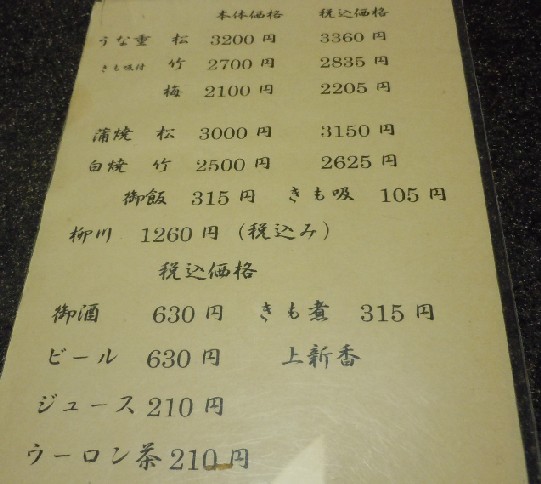 本体価格 税込価格
うな重 松 3200円 3360円
きも吸付 竹 2700円 2835円
梅 2100円 2205円
蒲焼 松 3000円 3150円
白焼 竹 2500円 2625円
御飯 315円 きも吸 105円
柳川 1260円(税込み)
税込価格
御酒 630円 きも煮 315円
ビール 630円 上新香
ジュース 210円
ウーロン茶 210円